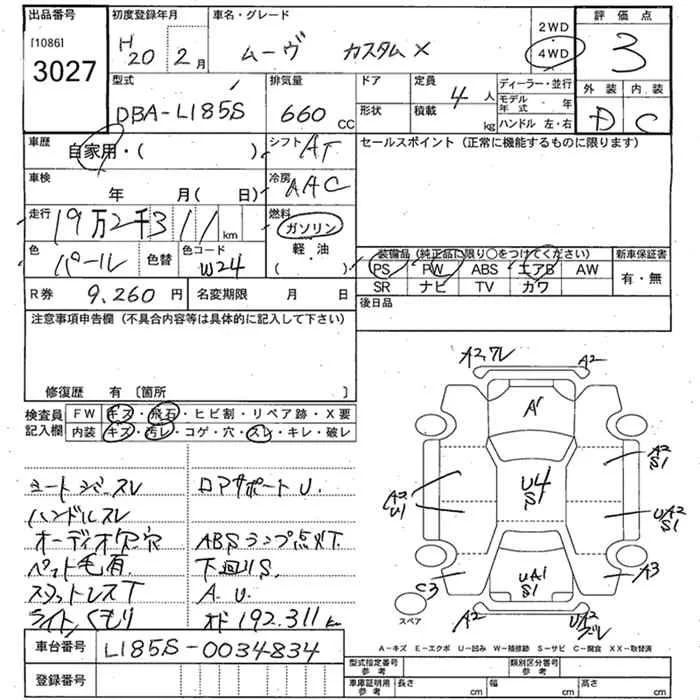 出品番号 初度登録年月 車名・グレード 評価点
[1086] 3027
H20 2月 ムーヴ カスタムX 2WD 4WD 3
型式 排気量 ドア 定員 ディーラー・並行 外装 内装
DBA-L185S 660 CC 形状 積載 4人 kg モデル年式 年 ハンドル 左・右 D C
車歴 自家用・( ) シフト AT セールスポイント (正常に機能するものに限ります)
車検 年 月( 日) 冷房 AAC
走行 19万2千311 km 燃料 ガソリン 軽・油 ( )
色 パール 色替 色コード W24
装備品 (純正品に限り○をつけてください) 新車保証書
PS PW ABS エアB AW 有・無
SR ナビ TV カワ
R券 9,260円 名変期限 月 日 後日品
注意事項申告欄 (不具合内容等は具体的に記入して下さい)
修復歴 有 〔箇所 〕
検査員記入欄 FW キズ・飛石・ヒビ割・リペア跡・X要
内装 キズ・汚レ・コゲ・穴・スレ・キレ・破レ
シートシワ・スレ ロアサポートU.
ハンドルスレ
オーディオ欠.穴 ABSランプ点灯
ペット毛有 下回りS.
スペアレスT A.U.
ライトくもり オド192,311km
A2.ワレ A2
A1
A2 S1
U4 S1
A2 U1
UA2 S1
C3 UA1 S1 A3
スペア A2 UA2 ワレ
A-キズ E-エクボ U-凹み W-補修跡 S-サビ C-腐食 XX-取替済
車台番号 L185S-0034834
登録番号
型式指定番号 参考 類別区分番号 参考
車庫証明用 参考 長さ cm 幅 cm 高さ cm